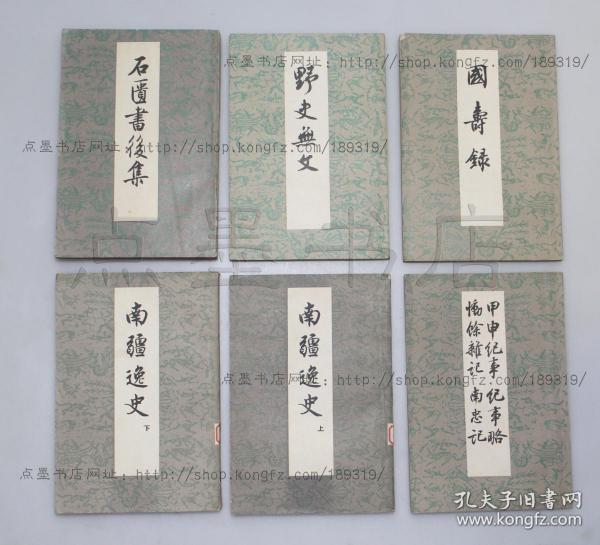 石匱書後集
野史無文
國壽録
南疆逸史
下
南疆逸史
上
甲申紀事 紀事略
慟餘雜記 南忠記
点墨书店网址：http://shop.kongfz.com/189319/
点墨书店网址：http://shop.kongfz.com/189319/
点墨书店网址：http://shop.kongfz.com/189319/
点墨书店网址：http://shop.kongfz.com/189319/
点墨书店网址：http://shop.kongfz.com/189319/
点墨书店
孔夫子旧书网
www.kongfz.com